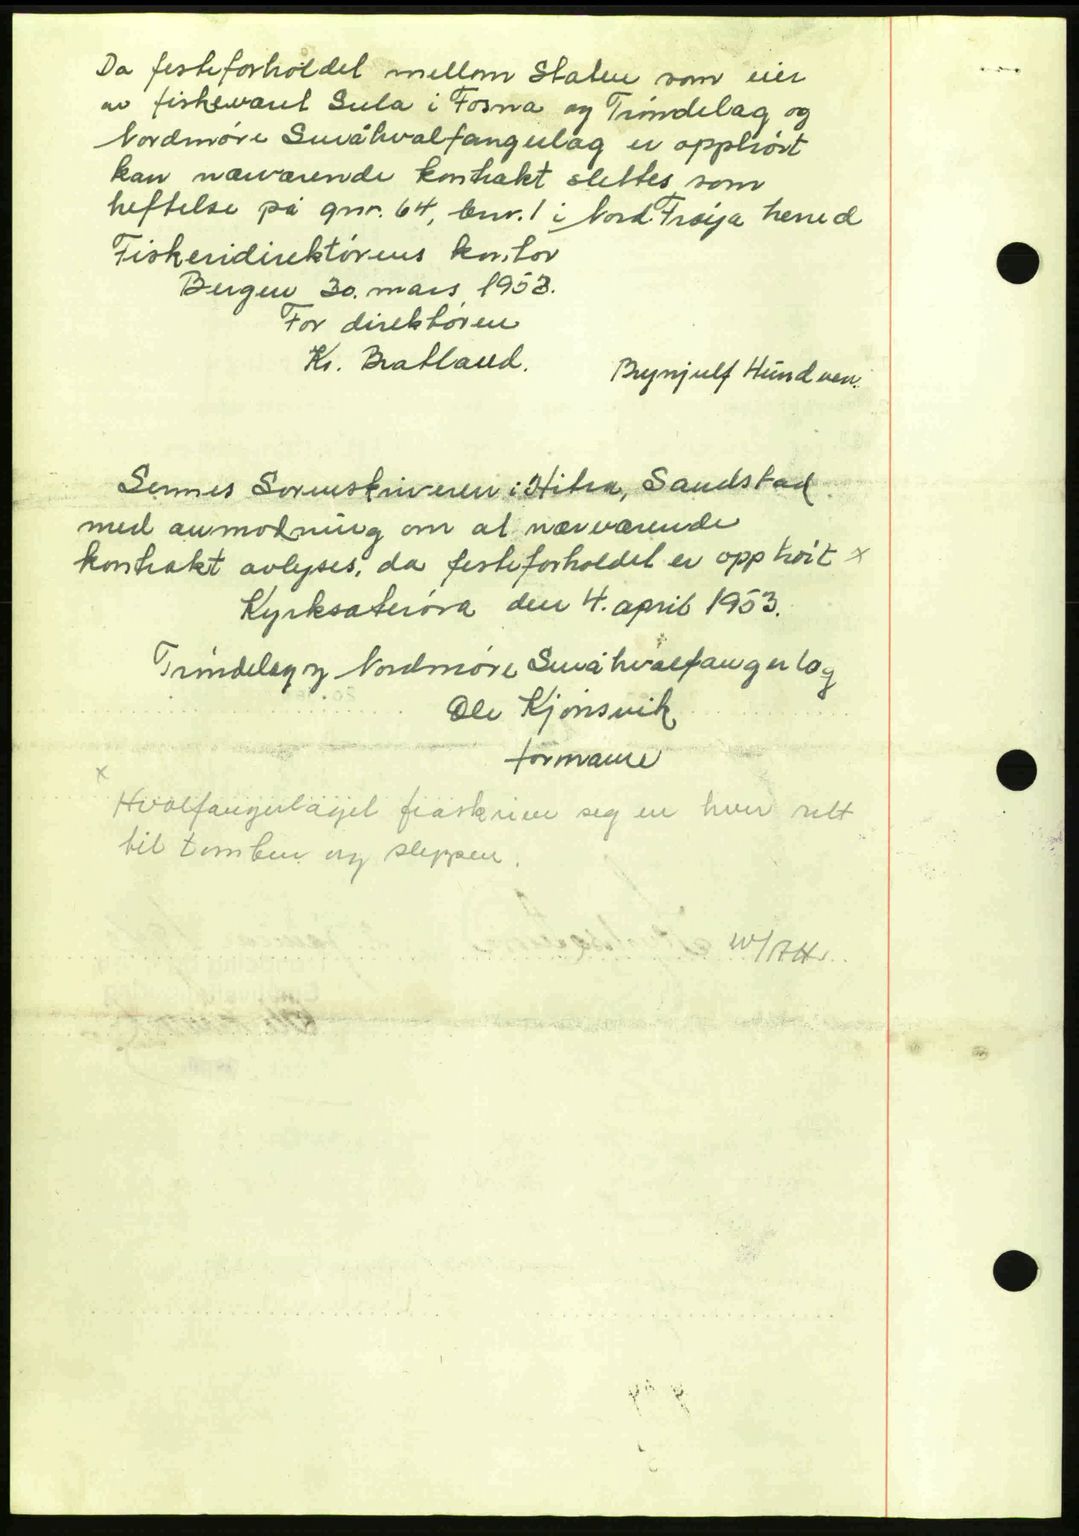 Da festeforholdet mellom Staten som eier
av fiskeværet Sula i Fosna og Trøndelag og
Nordmøre Småhvalfangerlag er opphørt
kan nærværende kontrakt slettes som
heftelse på gnr. 64, bnr. 1 i Nord Frøya herred
Fiskeridirektørens kontor
Bergen 30. mars 1953.
For direktøren
Kr. Bratland.
Brynjulf Hundven.
Sennes Sorenskriveren i Hitra, Sandstad
med anmodning om at nærværende
kontrakt avlyses, da festeforholdet er opphørt x
Kyrksæterøra den 4. april 1953.
Trøndelag og Nordmøre Småhvalfangerlag
Ole Kjønsvik
formann
x
Hvalfangerlaget fraskriver seg en hver rett
til tomten og sleppen.